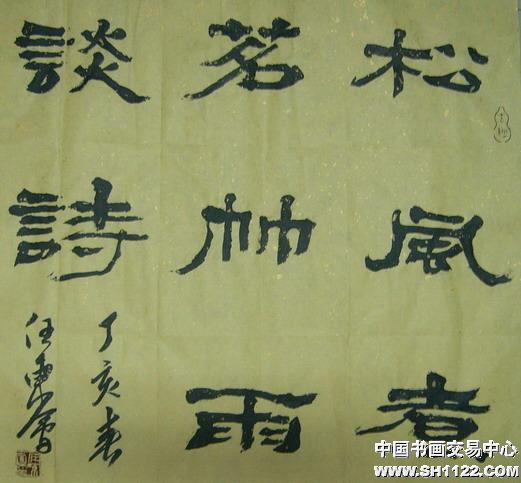 松風煮
茗竹雨
談詩
丁亥春
中国书画交易中心
www.SH1122.com